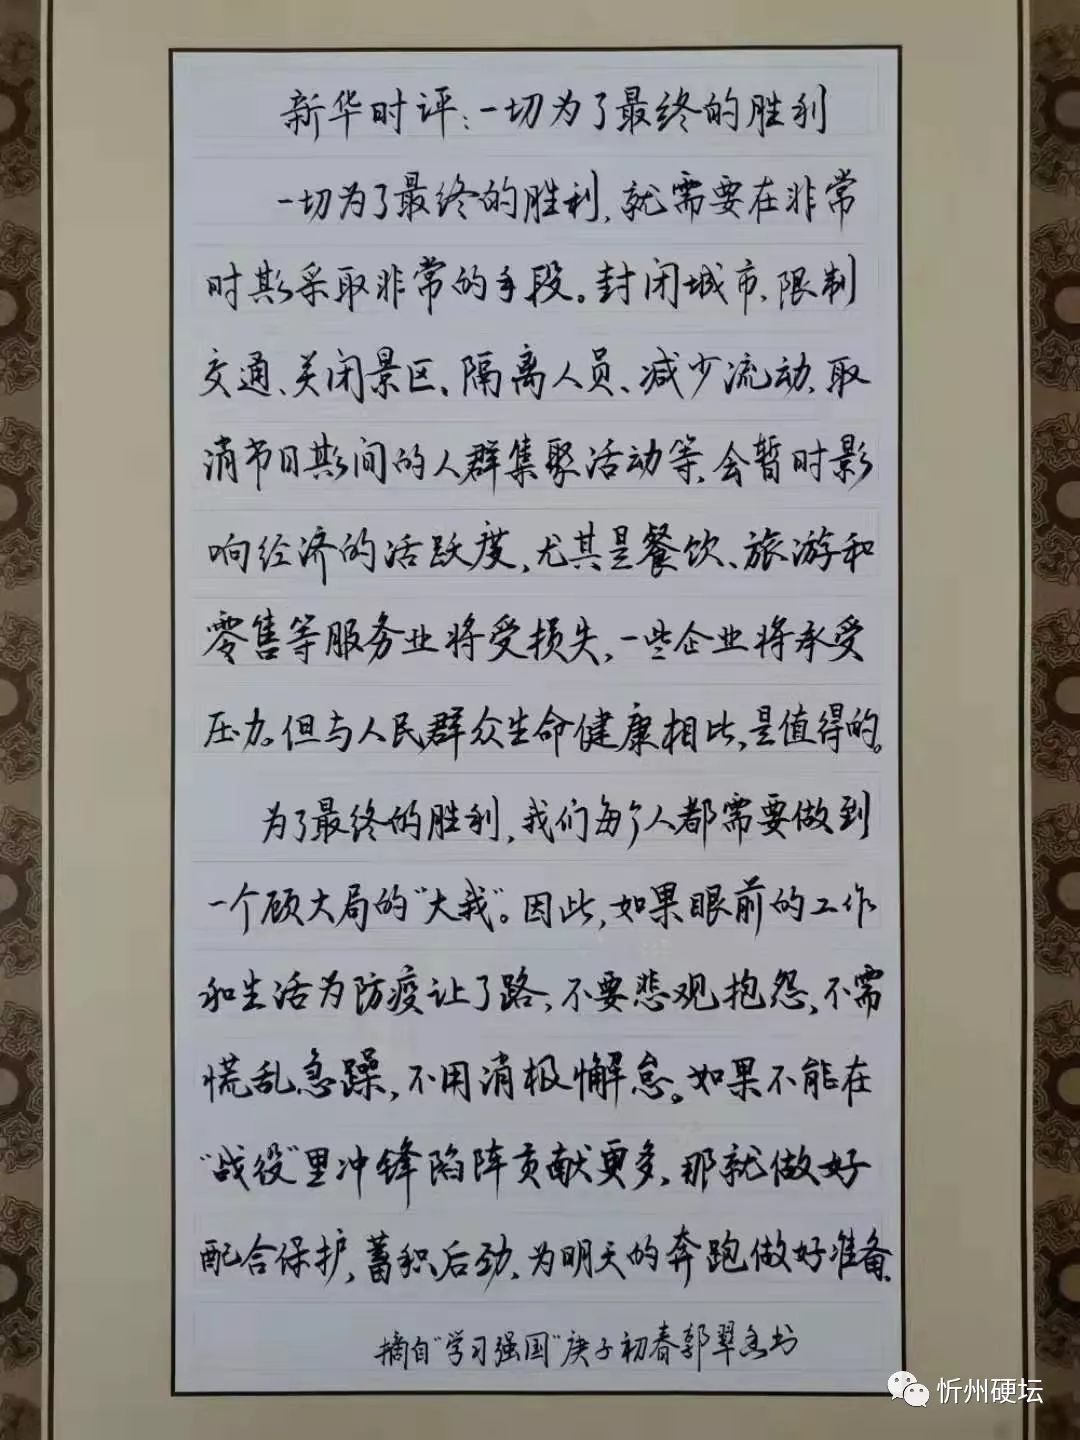 新华时评:一切为了最终的胜利
一切为了最终的胜利,就需要在非常
时期采取非常的手段。封闭城市、限制
交通、关闭景区、隔离人员、减少流动、取
消节日期间的人群集聚活动等,会暂时影
响经济的活跃度,尤其是餐饮、旅游和
零售等服务业将受损失,一些企业将承受
压力。但与人民群众生命健康相比,是值得的。
为了最终的胜利,我们每个人都需要做到
一个顾大局的“大我”。因此,如果眼前的工作
和生活为防疫让了路,不要悲观抱怨,不需
慌乱急躁,不用消极懈怠。如果不能在
“战役”里冲锋陷阵贡献更多,那就做好
配合保护,蓄积后劲,为明天的奔跑做好准备。
摘自“学习强国”庚子初春郭翠书
忻州硬坛